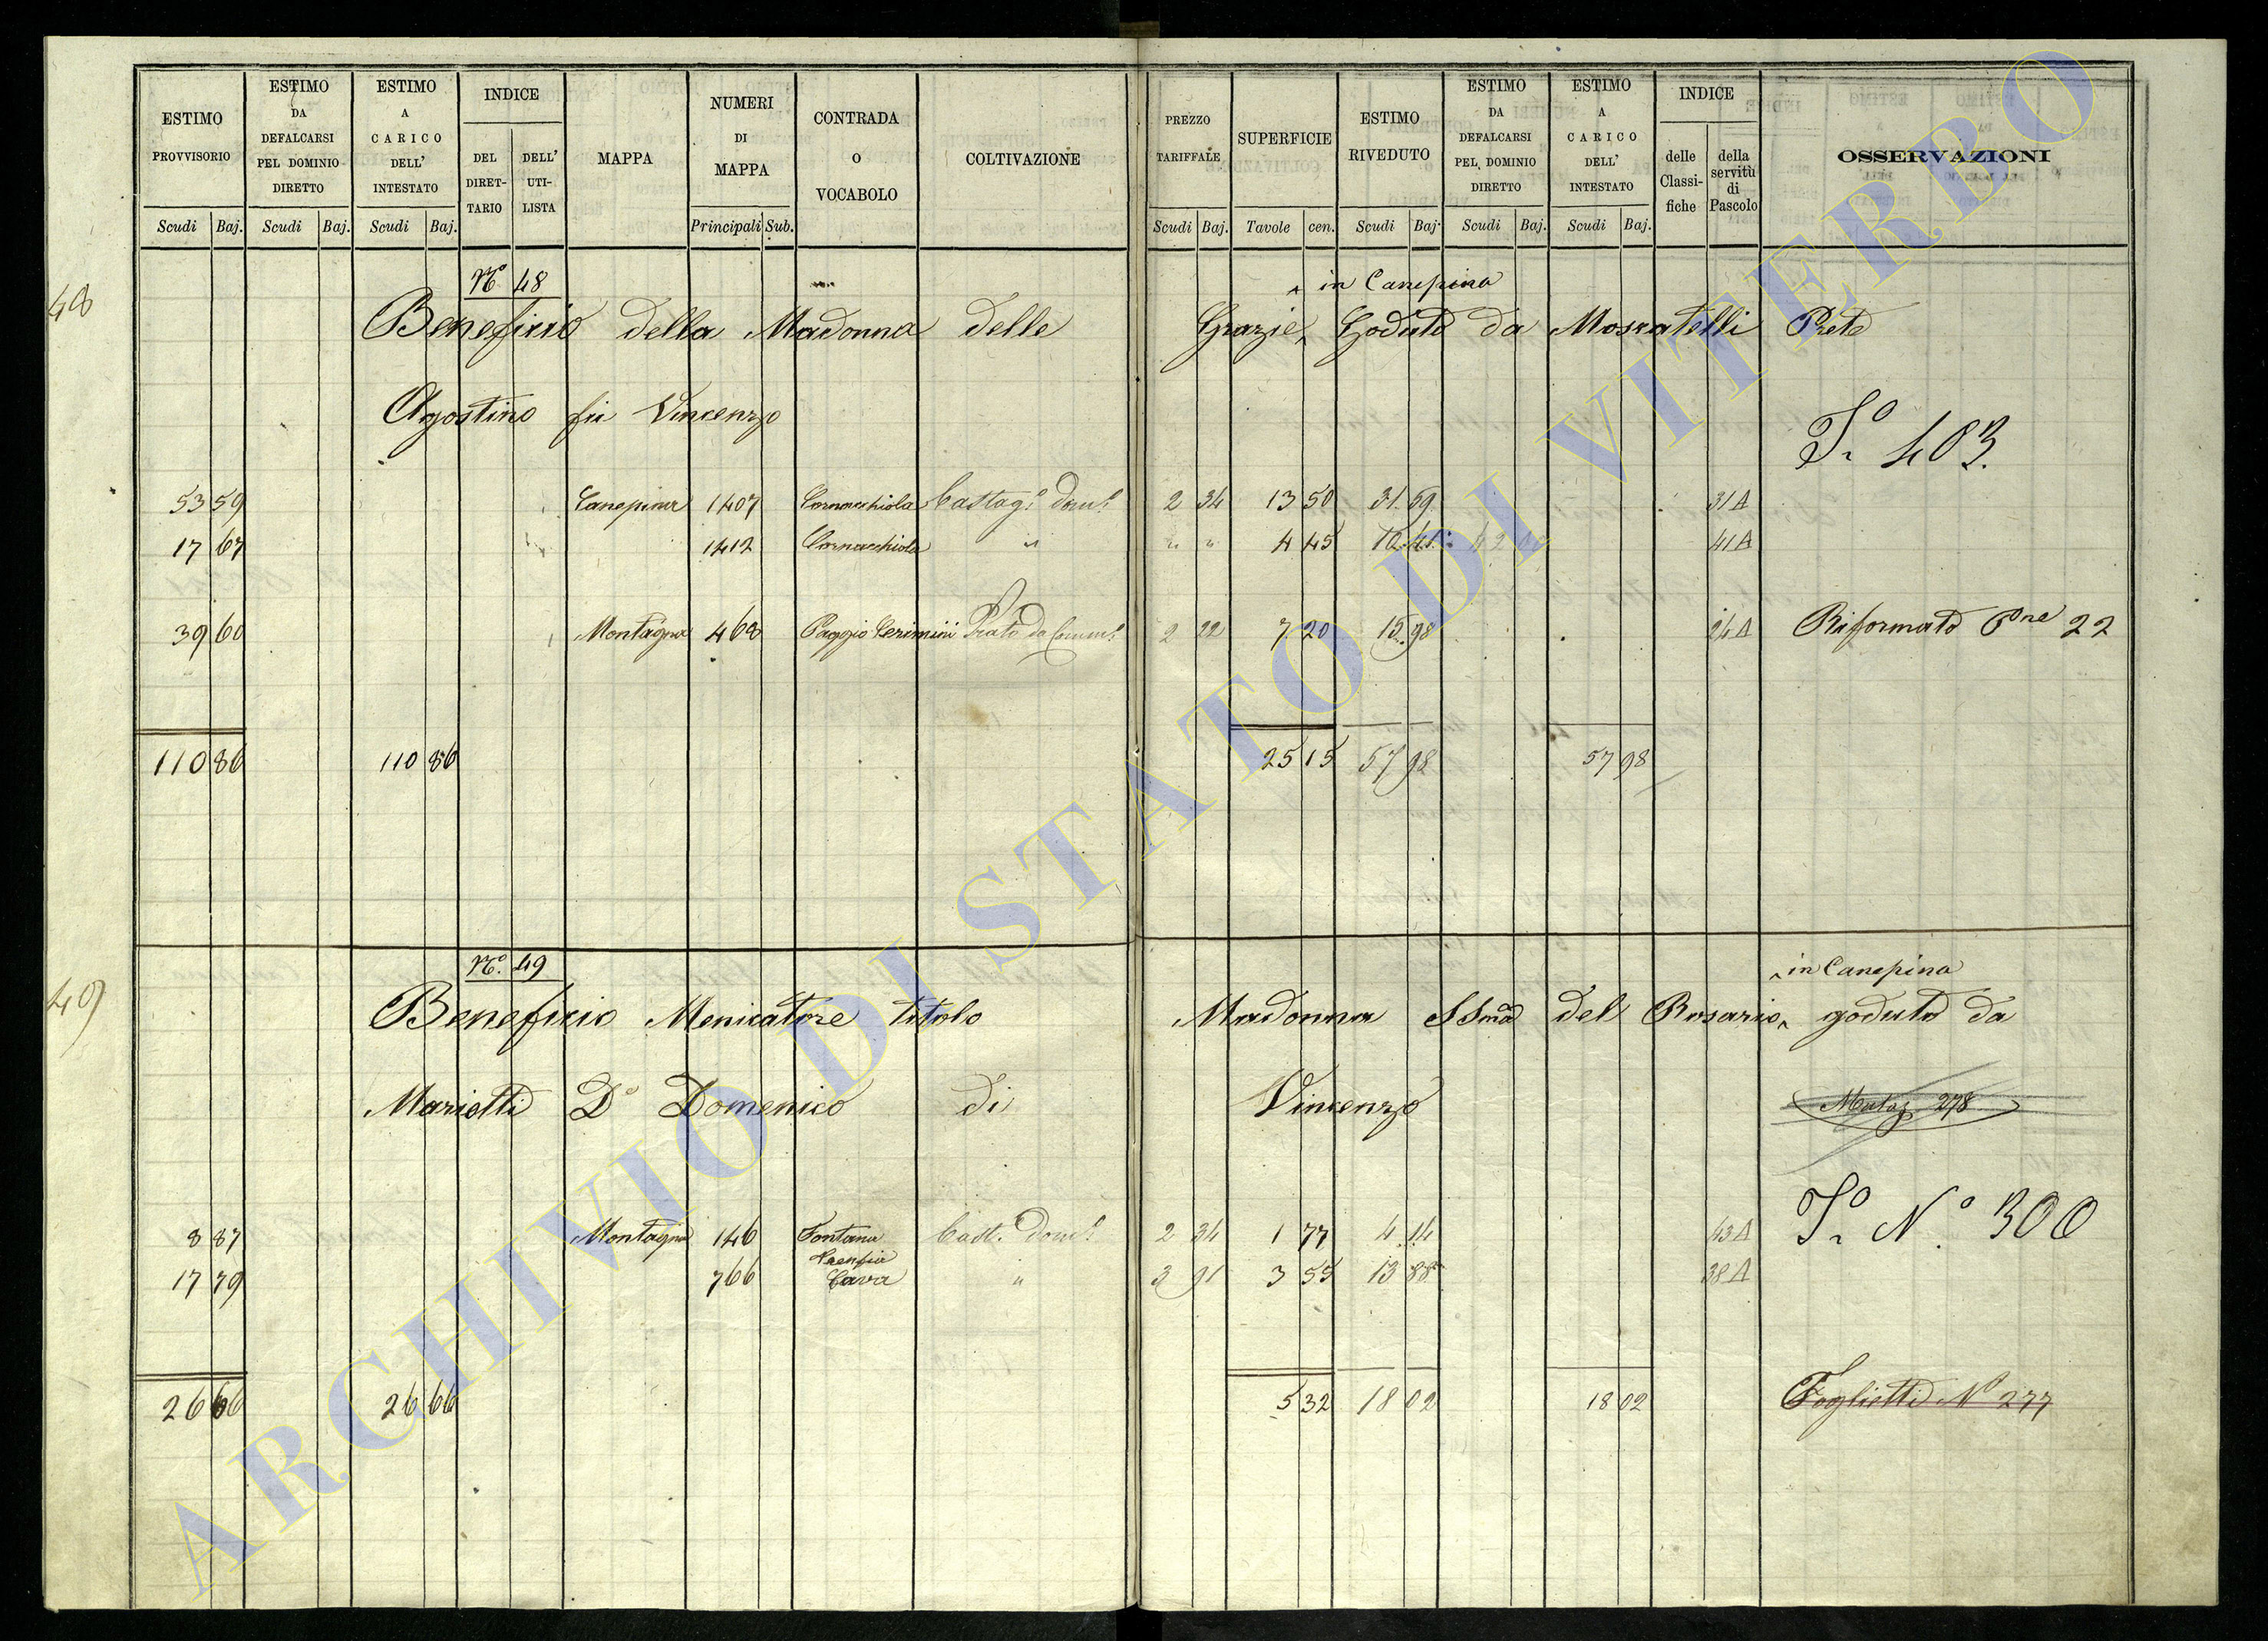 ESTIMO PROVVISORIO
ESTIMO DA DEFALCARSI PEL DOMINIO DIRETTO
ESTIMO A CARICO DELL' INTESTATO
INDICE
DEL DIRETTARIO
DELL' UTILISTA
MAPPA
NUMERI DI MAPPA
CONTRADA O VOCABOLO
COLTIVAZIONE
PREZZO TARIFFALE
SUPERFICIE
ESTIMO RIVEDUTO
ESTIMO DA DEFALCARSI PEL DOMINIO DIRETTO
ESTIMO A CARICO DELL' INTESTATO
INDICE
delle Classifiche
della servitù di Pascolo
OSSERVAZIONI
Scudi Baj. Scudi Baj. Scudi Baj. Principali Sub. Scudi Baj. Tavole cen. Scudi Baj. Scudi Baj. Scudi Baj.
48
N.º 48
in Canepina
Beneficio della Madonna delle Grazie Goduto da Moscatelli Prete
Agostino fu Vincenzo
T.º 403.
53 59 Canepina 1407 Cornacchiola Castag. Dom. 2 34 13 50 31 59 31 A
17 67 1412 Cornacchiola " " " 4 45 10 41 41 A
39 60 Montagna 468 Poggio Cerimini Prato 2 22 7 20 15 98 24 A Riformato Pne 22
110 86 110 86 25 15 57 98 57 98
49
N.º 49
in Canepina
Beneficio Menicatore titolo Madonna SSma del Rosario goduto da
Marietti D. Domenico di Vincenzo
278
T.º N.º 300
8 87 Montagna 146 Fontana Cast. Dom. 2 34 1 77 4 14 43 A
17 79 766 Cava " 3 91 3 55 13 88 38 A
26 66 26 66 5 32 18 02 18 02 Foglietti Nº 277
ARCHIVIO DI STATO DI VITERBO